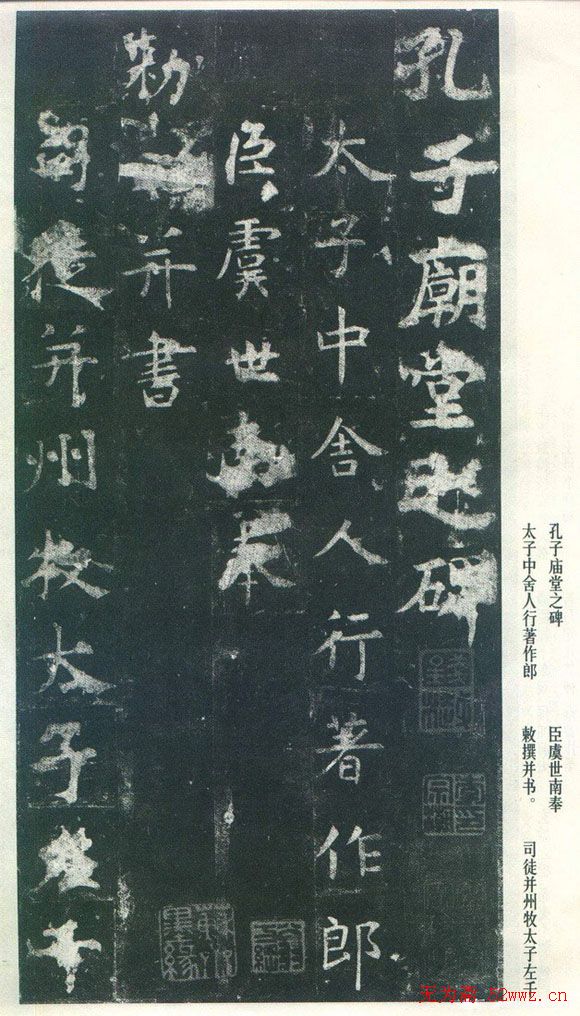 孔子廟堂之碑
太子中舍人行著作郎
臣虞世南奉
勑撰并書
司徒并州牧太子左千
孔子庙堂之碑
太子中舍人行著作郎
臣虞世南奉
敕撰并书。
司徒并州牧太子左千